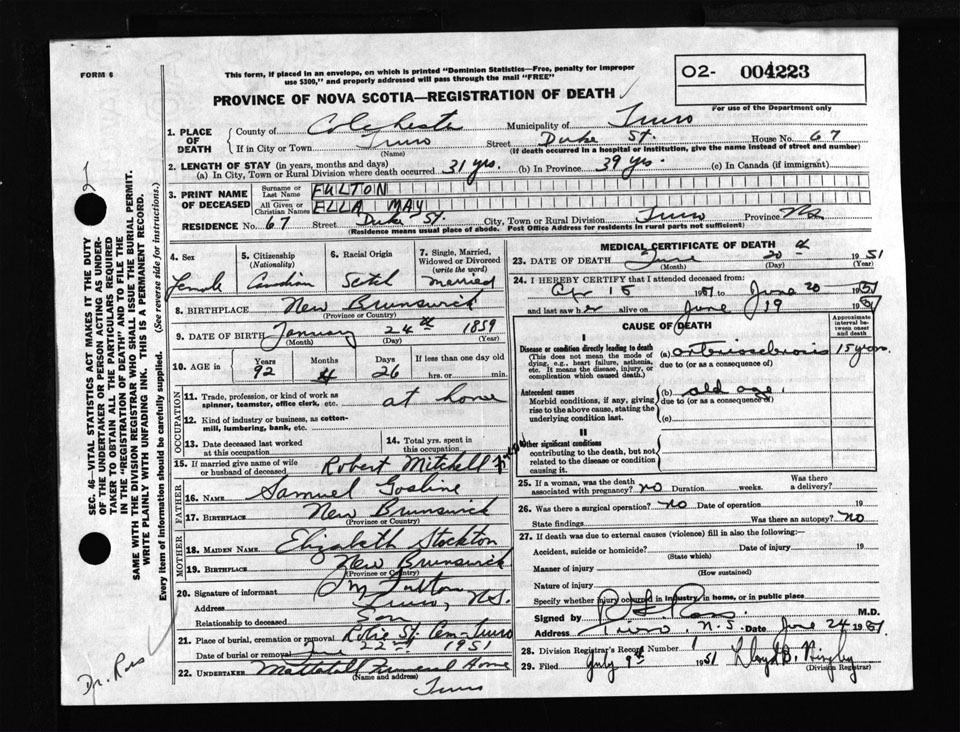 FORM 6
This form, if placed in an envelope, on which is printed "Dominion Statistics—Free, penalty for improper
use $300," and properly addressed will pass through the mail "FREE"
PROVINCE OF NOVA SCOTIA—REGISTRATION OF DEATH
02- 004223
For use of the Department only
1. PLACE OF DEATH
County of Colchester Municipality of Truro
If in City or Town Truro Street Duke St. House No. 67
(Name) (If death occurred in a hospital or institution, give the name instead of street and number)
2. LENGTH OF STAY (in years, months and days)
(a) In City, Town or Rural Division where death occurred 31 yrs. (b) In Province 39 yrs. (c) In Canada (if immigrant)
3. PRINT NAME OF DECEASED
Surname or Last Name FULTON
All Given or Christian Names ELLA MAY
RESIDENCE No. 67 Street Duke St. City, Town or Rural Division Truro Province NS
(Residence means usual place of abode. Post Office Address for residents in rural parts not sufficient)
4. Sex
Female
5. Citizenship (Nationality)
Canadian
6. Racial Origin
Scotch
7. Single, Married, Widowed or Divorced (write the word)
married
8. BIRTHPLACE New Brunswick
(Province or Country)
9. DATE OF BIRTH January 24th 1859
(Month) (Day) (Year)
10. AGE in Years 92 Months 4 Days 26 If less than one day old hrs. or min.
OCCUPATION
11. Trade, profession, or kind of work as spinner, teamster, office clerk, etc. at home
12. Kind of industry or business, as cotton-mill, lumbering, bank, etc.
13. Date deceased last worked at this occupation
14. Total yrs. spent in this occupation
15. If married give name of wife or husband of deceased Robert Mitchell Fulton
FATHER
16. NAME Samuel Gosline
17. BIRTHPLACE New Brunswick
(Province or Country)
MOTHER
18. MAIDEN NAME Elizabeth Stockton
19. BIRTHPLACE New Brunswick
(Province or Country)
20. Signature of informant M Fulton
Address Truro, N.S.
Relationship to deceased Son
21. Place of burial, cremation or removal Robie St. Cem - Truro
Date of burial or removal June 22nd 1951
22. UNDERTAKER Mattatall Funeral Home
(Name and address)
Truro
MEDICAL CERTIFICATE OF DEATH
23. DATE OF DEATH June 20th 1951
(Month) (Day) (Year)
24. I HEREBY CERTIFY that I attended deceased from:
Apr 18 1951 to June 20 1951
and last saw her alive on June 19 1951
CAUSE OF DEATH
Approximate interval between onset and death
I
Disease or condition directly leading to death
(This does not mean the mode of dying, e.g., heart failure, asthenia, etc. It means the disease, injury, or complication which caused death.)
(a) arteriosclerosis 15 years
due to (or as a consequence of)
Antecedent causes
Morbid conditions, if any, giving rise to the above cause, stating the underlying condition last.
(b) old age,
due to (or as a consequence of)
(c)
II
Other significant conditions
contributing to the death, but not related to the disease or condition causing it.
25. If a woman, was the death associated with pregnancy? no Duration weeks. Was there a delivery?
26. Was there a surgical operation? no Date of operation 19
State findings Was there an autopsy? no
27. If death was due to external causes (violence) fill in also the following:—
Accident, suicide or homicide? Date of injury 19
(State which)
Manner of injury
(How sustained)
Nature of injury
Specify whether injury occurred in industry, in home, or in public place
Signed by Ross M.D.
Address Truro N.S. Date June 24 1951
28. Division Registrar's Record Number 1
29. Filed July 9th 1951 Lloyd
(Division Registrar)
SEC. 46—VITAL STATISTICS ACT MAKES IT THE DUTY
OF THE UNDERTAKER OR PERSON ACTING AS UNDER-
TAKER TO OBTAIN ALL THE PARTICULARS REQUIRED
IN THE "REGISTRATION OF DEATH" AND TO FILE THE
SAME WITH THE DIVISION REGISTRAR WHO SHALL ISSUE THE BURIAL PERMIT.
WRITE PLAINLY WITH UNFADING INK. THIS IS A PERMANENT RECORD.
Every item of information should be carefully supplied. (See reverse side for instructions.)
Dr. Ross